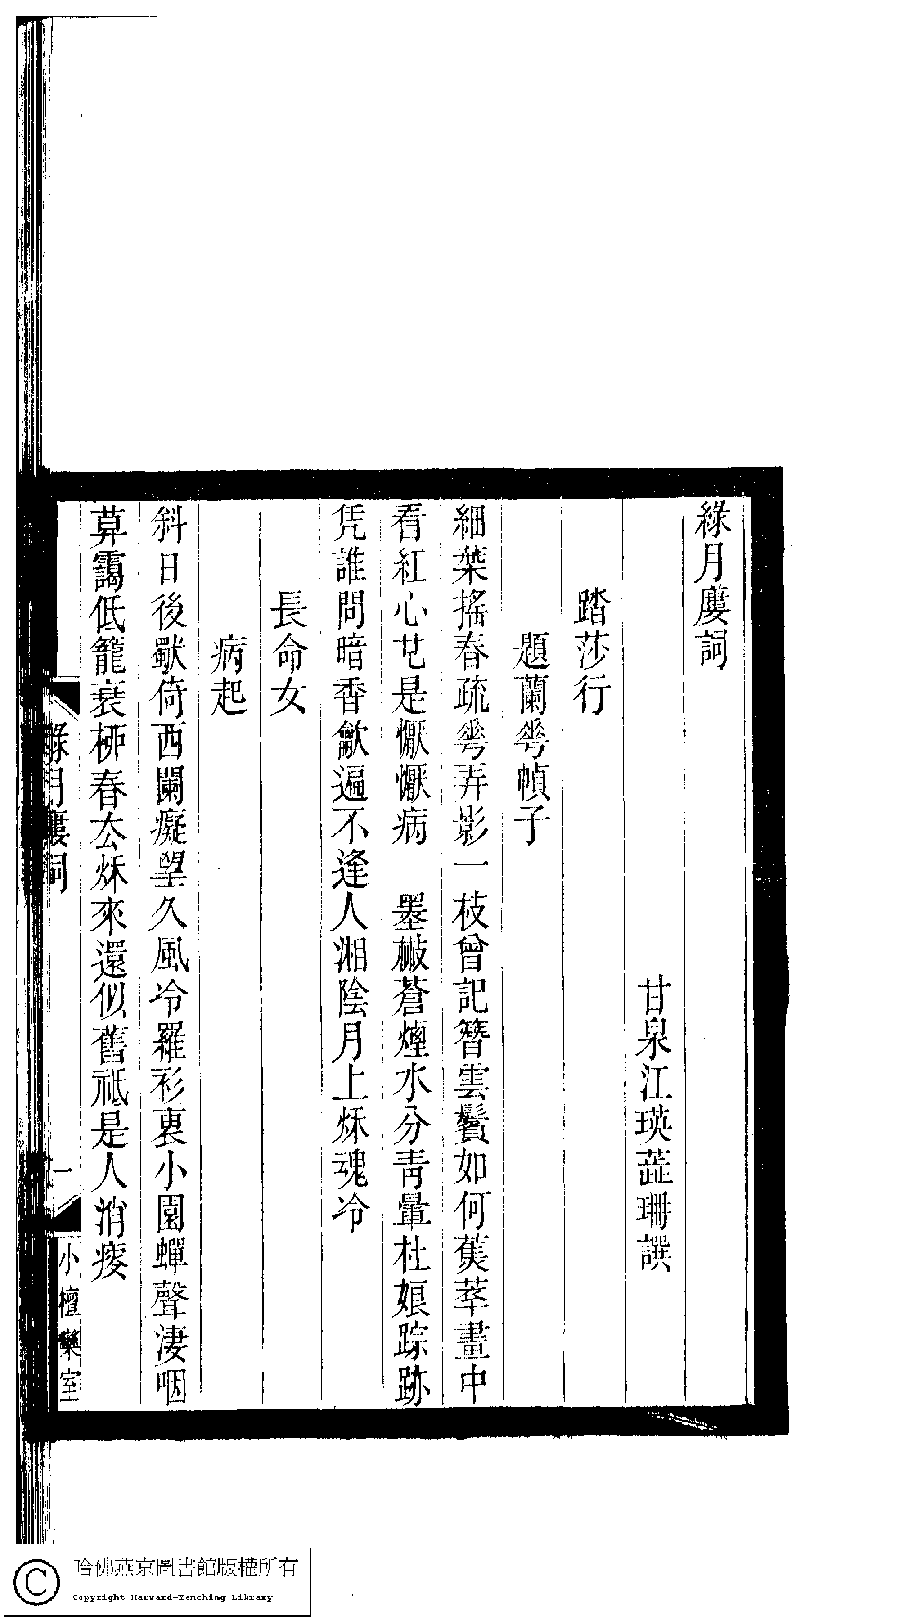 綠月廔詞
甘泉江瑛蕋珊譔
踏莎行
題蘭蕚幀子
細葉搖春疏蕚弄影一枝曾記簪雲鬢如何蕉萃畫中
看紅心芑是懨懨病　墨㰚蒼煙水分青暈杜娘踪跡
凭誰問暗香歙遍不逢人湘陰月上秌魂冷
長命女
病起
斜日後猒倚西闌癡望久風冷羅衫裏小園蟬聲淒咽
莫靄低籠衰柳春厺秌來還似舊祗是人消瘦
綠月廔詞
一
小檀欒室
哈佛燕京圖書館版權所有
Copyright Harvard-Yenching Library